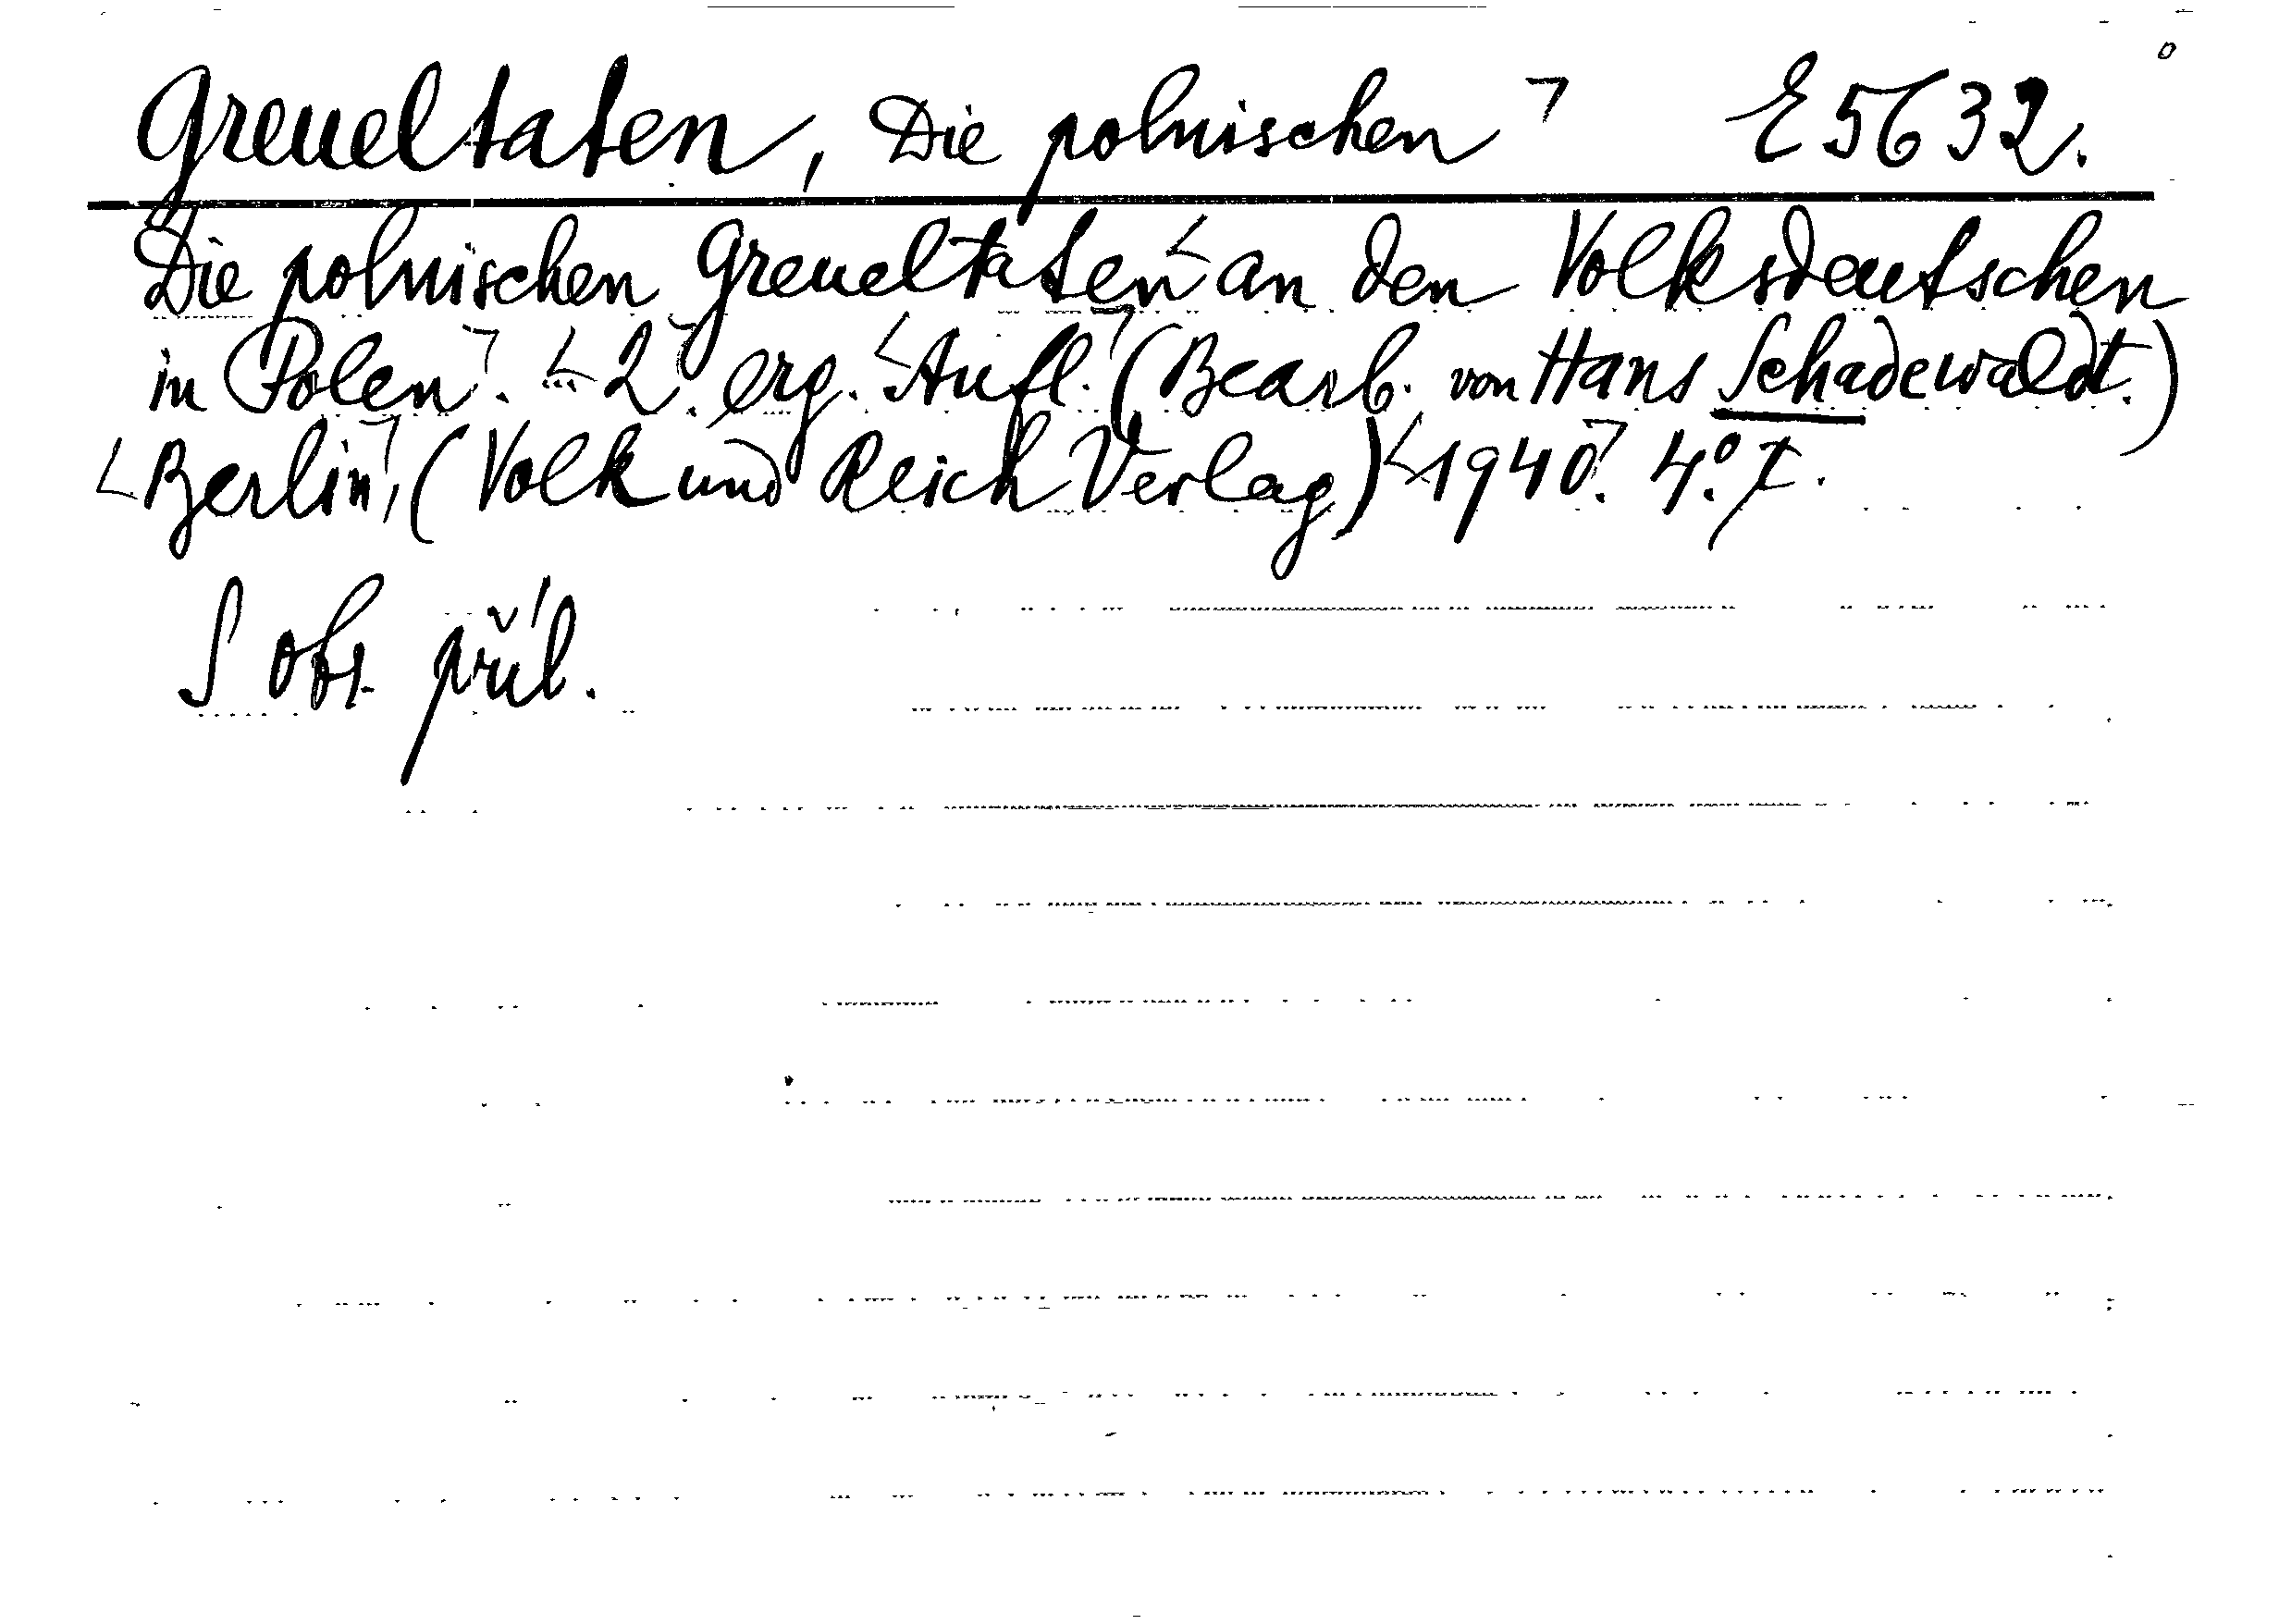 Greueltaten, Die polnischen E 5632.
Die polnischen Greueltaten an den Volksdeutschen
in Polen. 2. erg. Aufl. (Bearb. von Hans Schadewaldt.)
Berlin, (Volk und Reich Verlag) 1940. 4°.
S obr. příl.